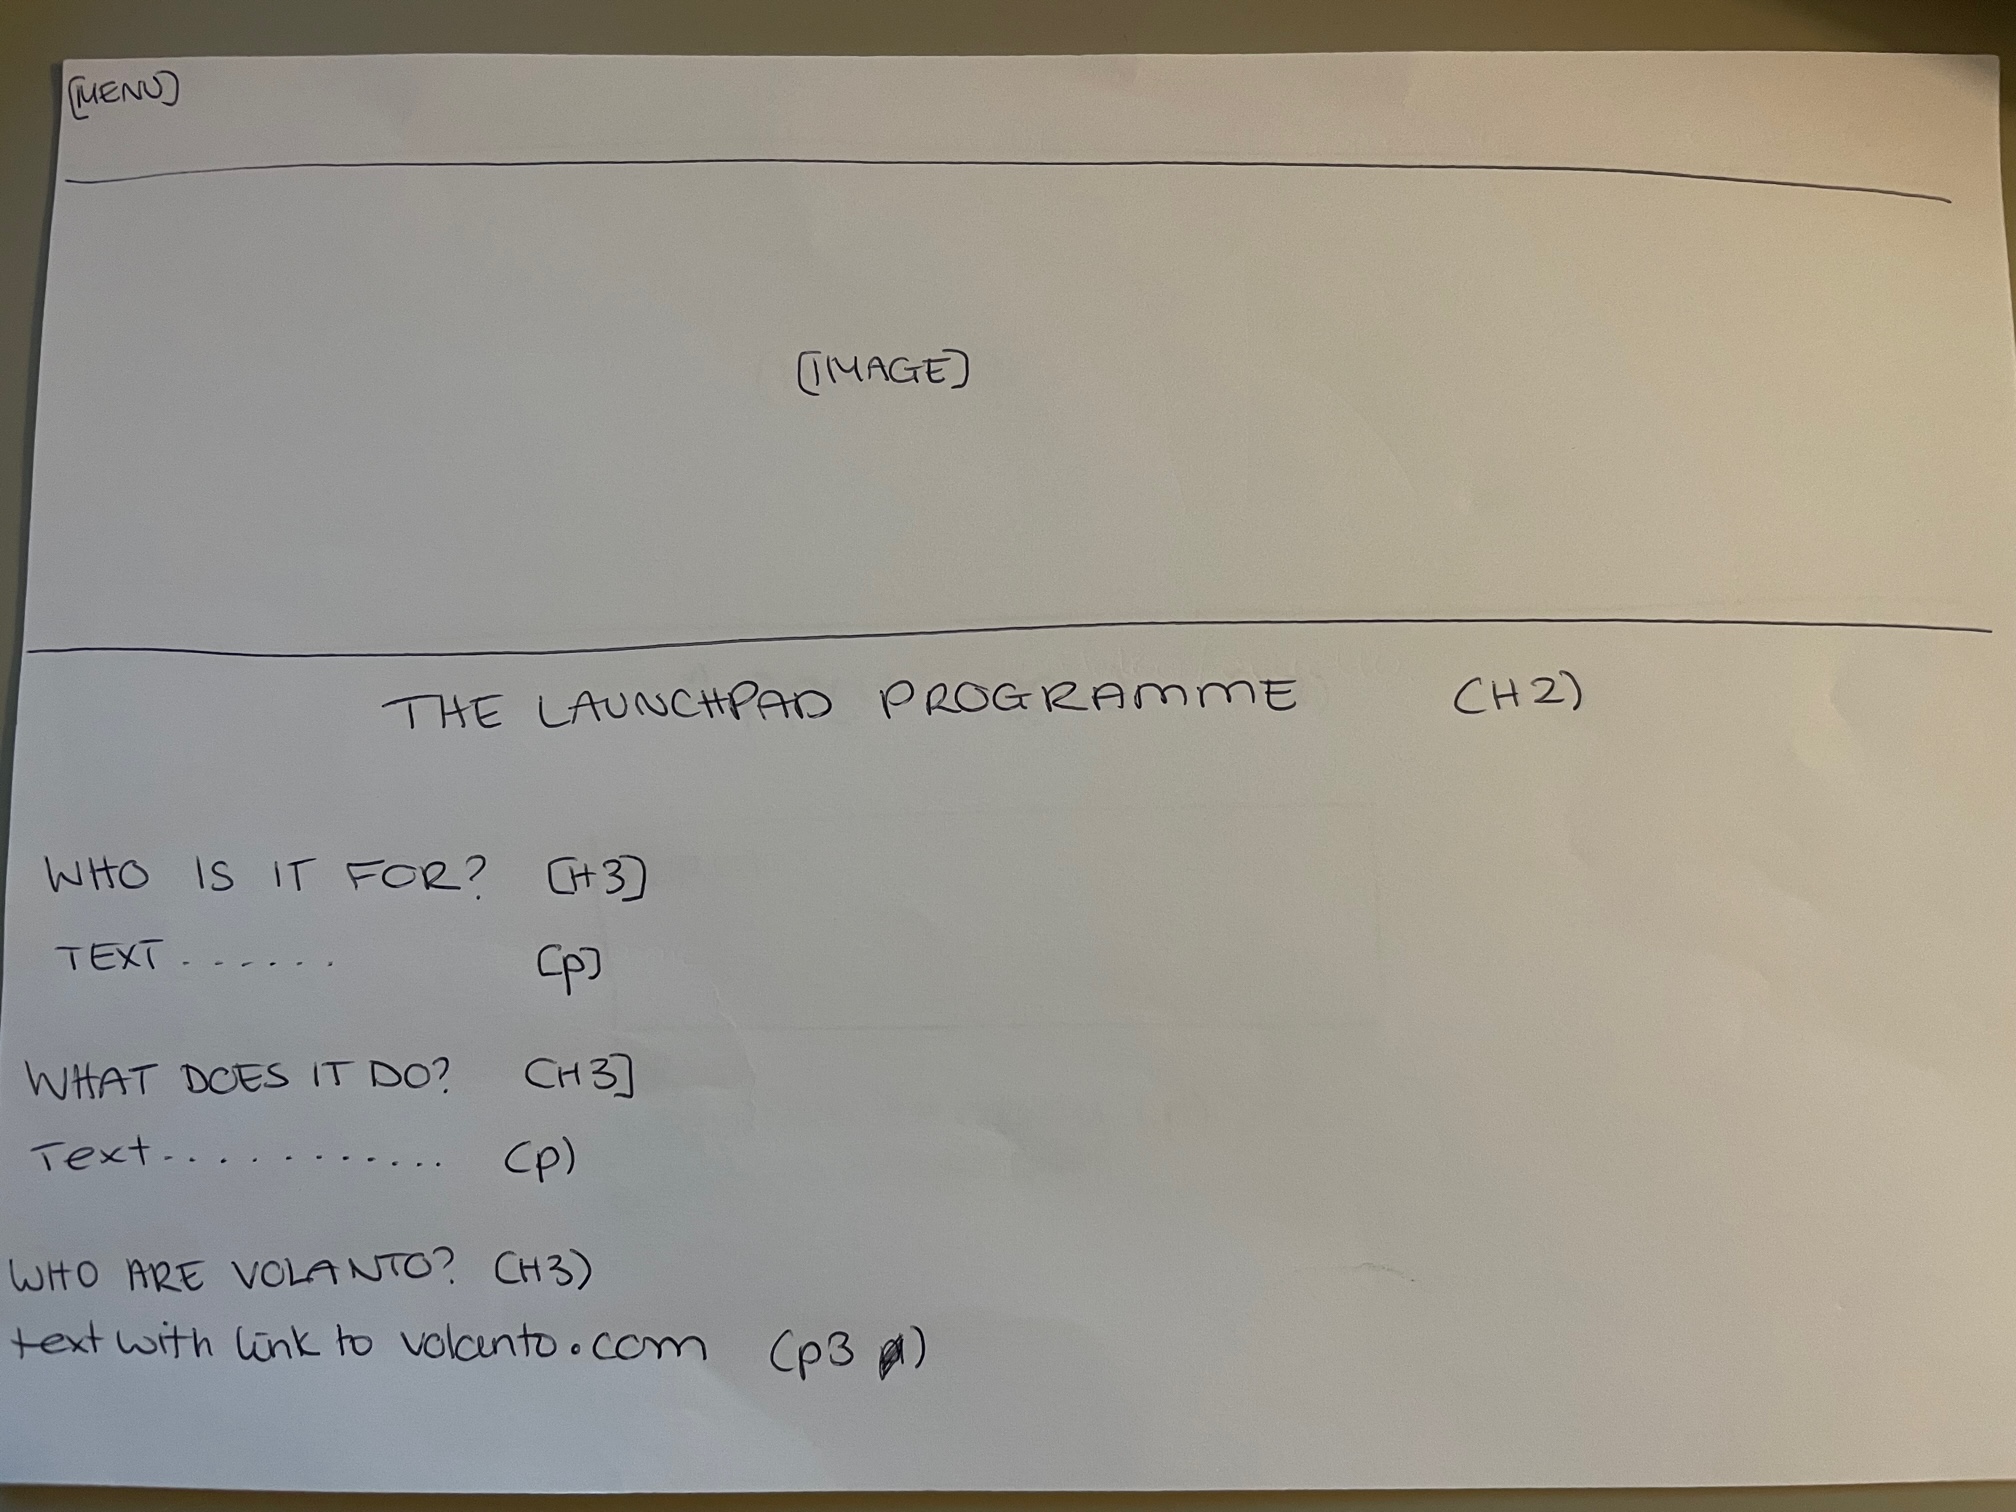 [MENU]
[IMAGE]
THE LAUNCHPAD PROGRAMME (H2)
WHO IS IT FOR? [H3]
TEXT...... [p]
WHAT DOES IT DO? [H3]
Text.......... (p)
WHO ARE VOLANTO? (H3)
text with link to volanto.com (p3)